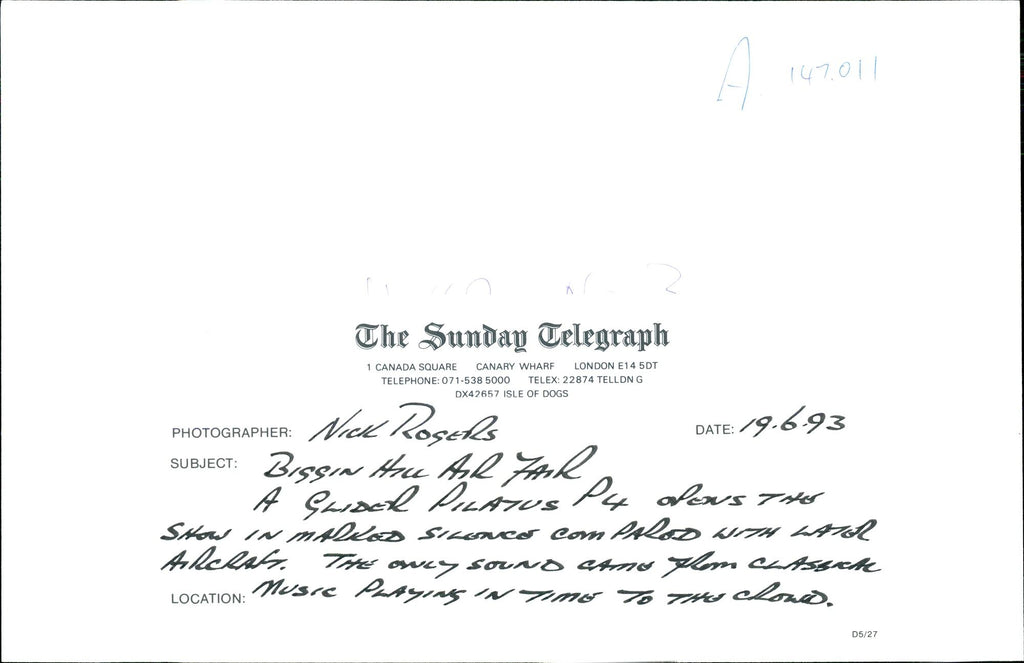 A 147.011
The Sunday Telegraph
1 CANADA SQUARE CANARY WHARF LONDON E14 5DT
TELEPHONE: 071-538 5000 TELEX: 22874 TELLDN G
DX42657 ISLE OF DOGS
PHOTOGRAPHER: Nick Rogers DATE: 19.6.93
SUBJECT: BIGGIN HILL AIR FAIR
A GLIDER PILATUS P4 OPENS THE
SHOW IN MARKED SILENCE COMPARED WITH LATER
AIRCRAFT. THE ONLY SOUND CAME FROM CLASSICAL
LOCATION: MUSIC PLAYING IN TIME TO THE CROWD.
D5/27